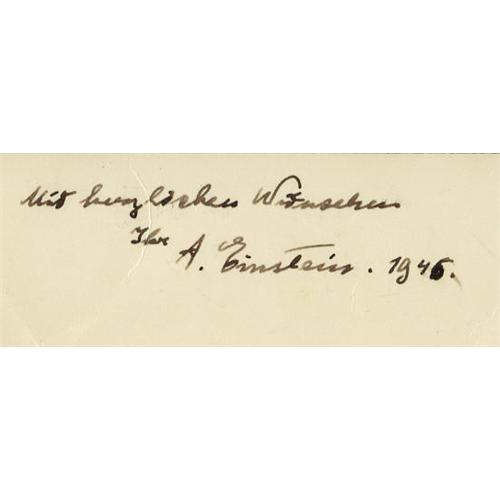 Mit herzlichen Wünschen
Ihr
A. Einstein. 1945.